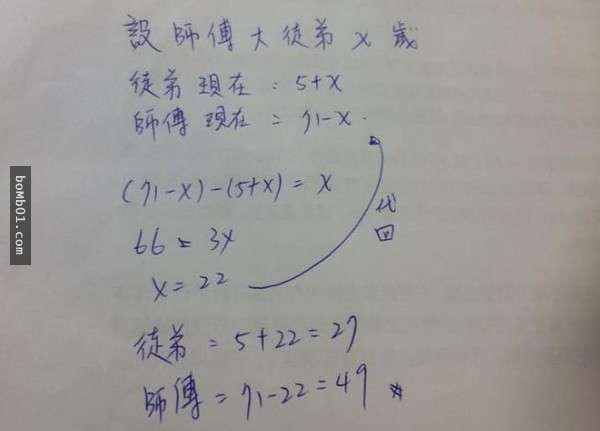 設師傅大徒弟x歲
徒弟現在：5+x
師傅現在：71-x.
(71-x)-(5+x)=x
66=3x
x=22
代
回
徒弟=5+22=27
師傅=71-22=49
boMb01.com